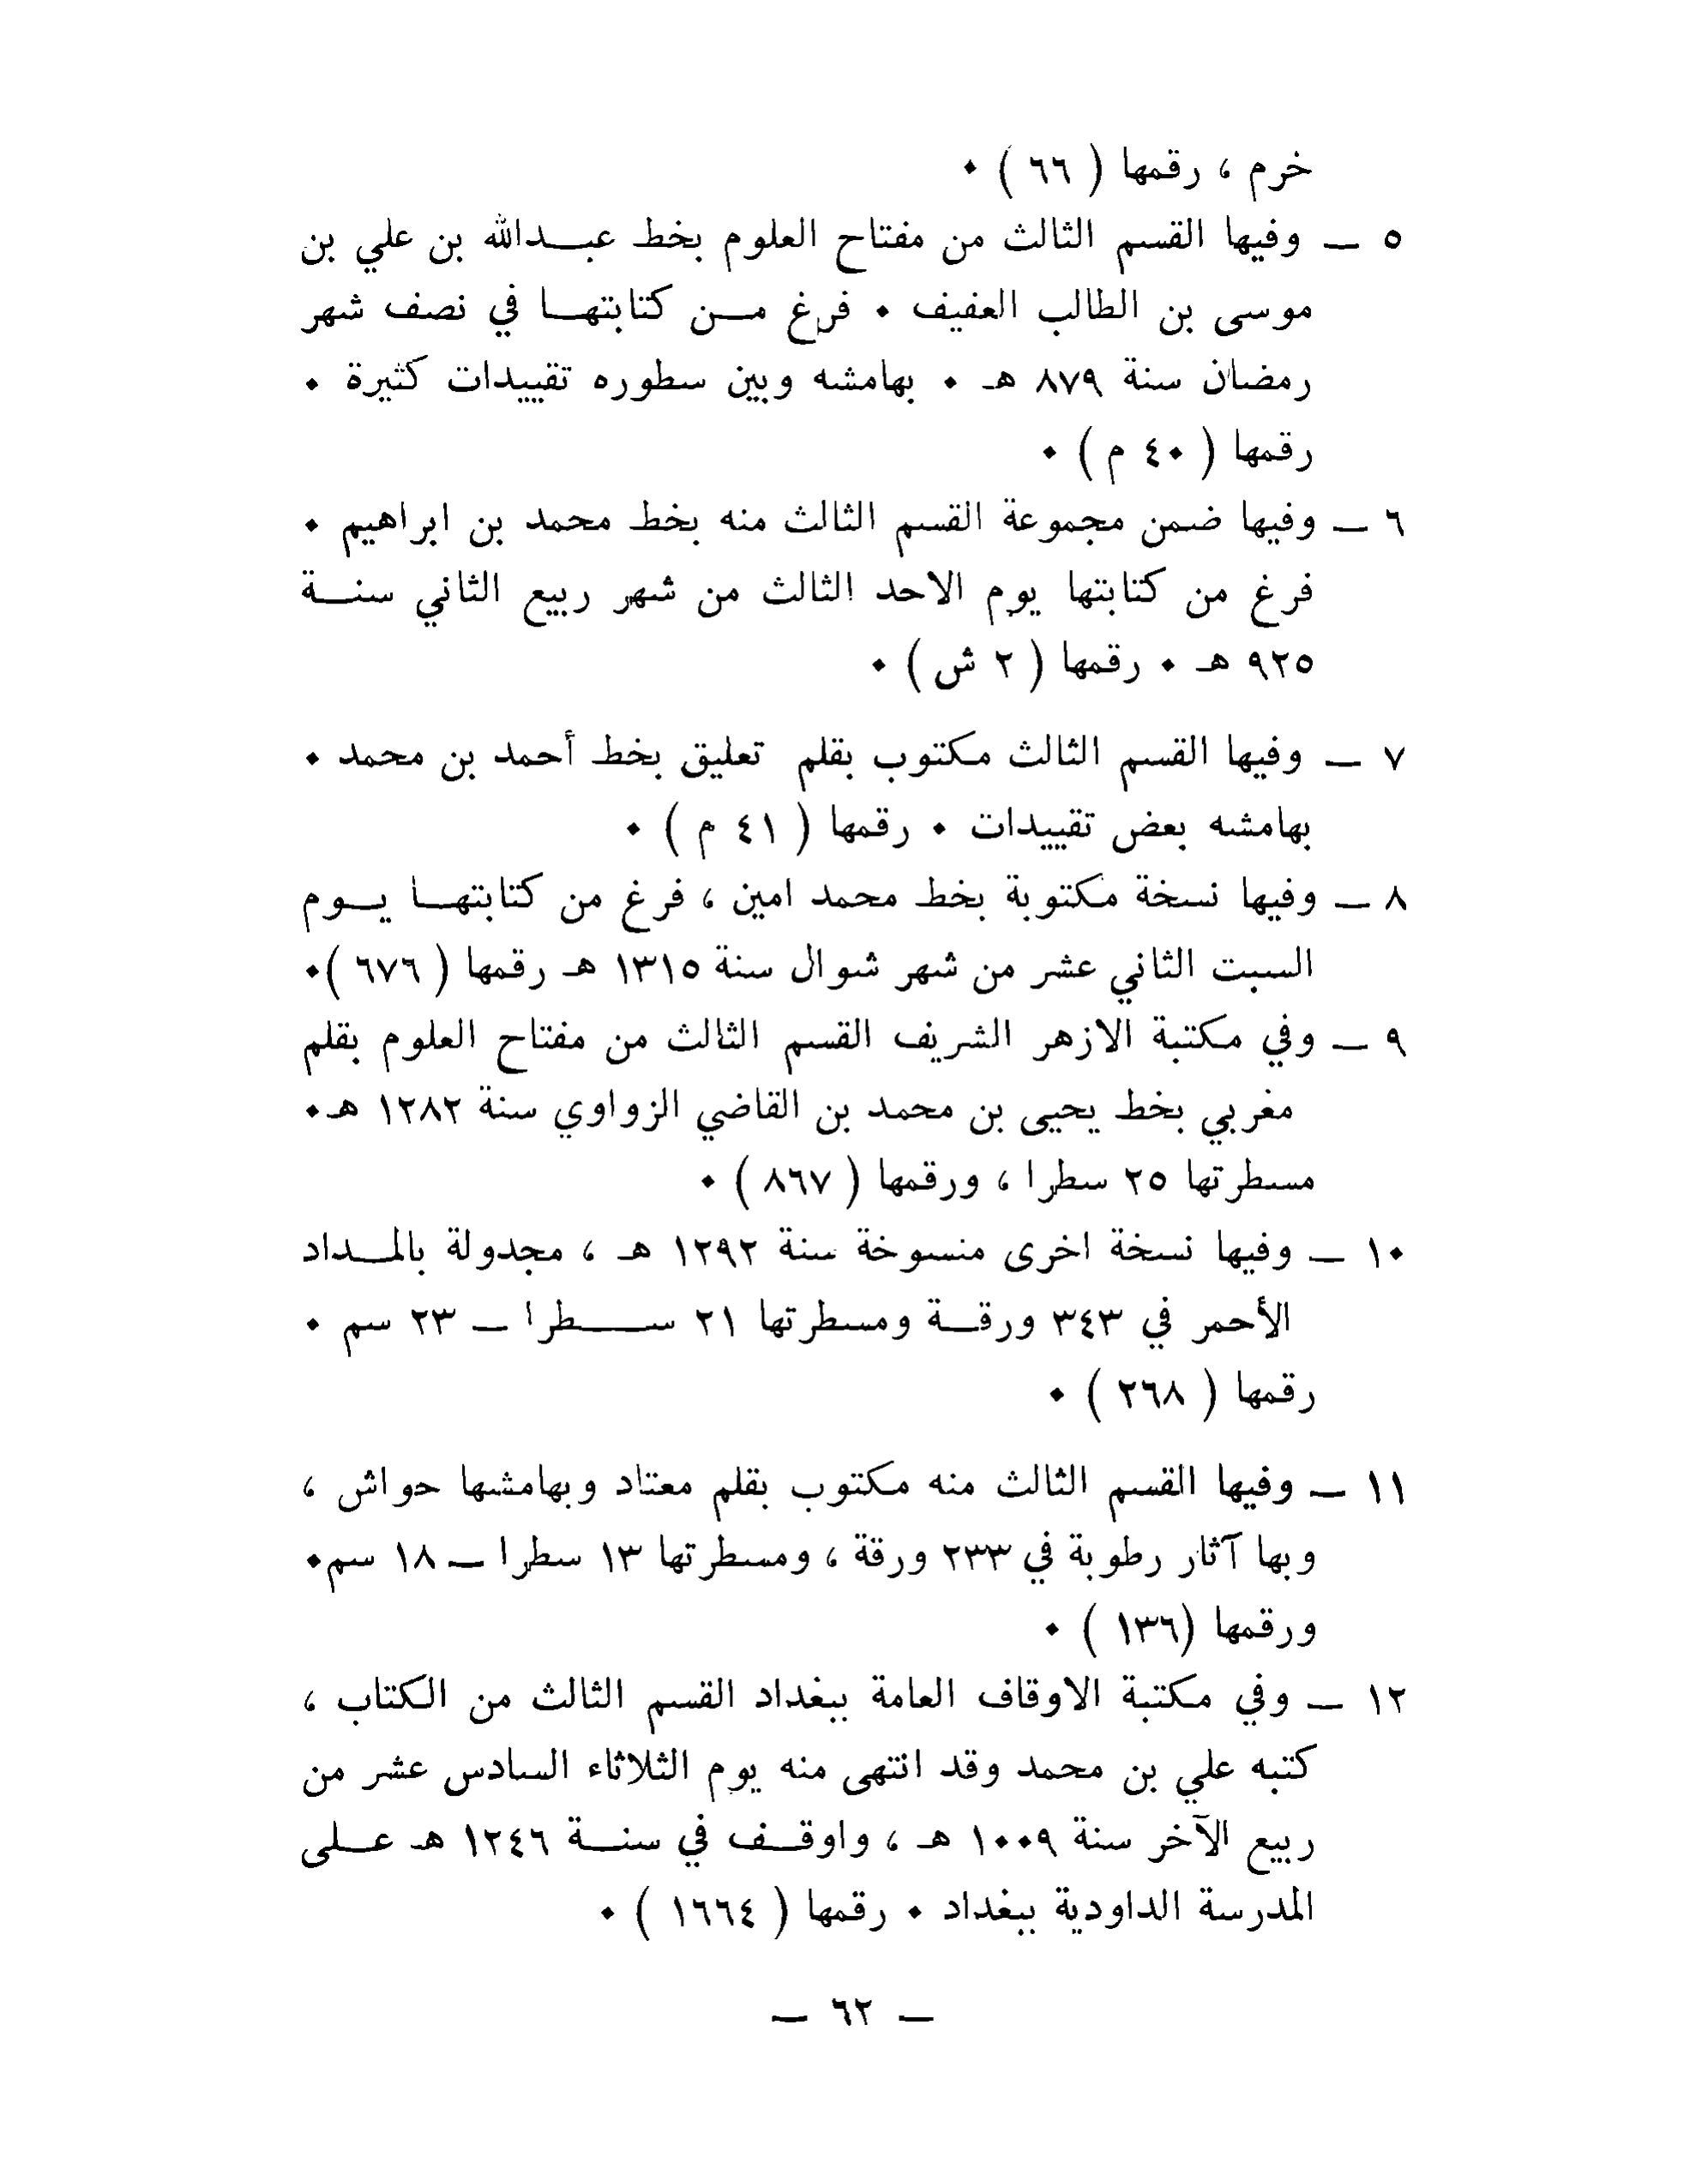 خرم ، رقمها ( ٦٦ ) ٠
٥ ـ وفيها القسم الثالث من مفتاح العلوم بخط عبـدالله بن علي بن
موسى بن الطالب العفيف ٠ فرغ مـن كتابتهـا في نصف شهر
رمضان سنة ٨٧٩ هـ ٠ بهامشه وبين سطوره تقييدات كثيرة ٠
رقمها ( ٤٠ م ) ٠
٦ ـ وفيها ضمن مجموعة القسم الثالث منه بخط محمد بن ابراهيم ٠
فرغ من كتابتها يوم الاحد الثالث من شهر ربيع الثاني سنـة
٩٢٥ هـ ٠ رقمها ( ٢ ش ) ٠
٧ ـ وفيها القسم الثالث مكتوب بقلم تعليق بخط أحمد بن محمد ٠
بهامشه بعض تقييدات ٠ رقمها ( ٤١ م ) ٠
٨ ـ وفيها نسخة مكتوبة بخط محمد امين ، فرغ من كتابتهـا يـوم
السبت الثاني عشر من شهر شوال سنة ١٣١٥ هـ رقمها ( ٦٧٦ )٠
٩ ـ وفي مكتبة الازهر الشريف القسم الثالث من مفتاح العلوم بقلم
مغربي بخط يحيى بن محمد بن القاضي الزواوي سنة ١٢٨٢ هـ٠
مسطرتها ٢٥ سطرا ، ورقمها ( ٨٦٧ ) ٠
١٠ ـ وفيها نسخة اخرى منسوخة سنة ١٢٩٢ هـ ، مجدولة بالمـداد
الأحمر في ٣٤٣ ورقـة ومسطرتها ٢١ سـطرا ـ ٢٣ سم ٠
رقمها ( ٢٦٨ ) ٠
١١ ـ وفيها القسم الثالث منه مكتوب بقلم معتاد وبهامشها حواش ،
وبها آثار رطوبة في ٢٣٣ ورقة ، ومسطرتها ١٣ سطرا ـ ١٨ سم٠
ورقمها (١٣٦ ) ٠
١٢ ـ وفي مكتبة الاوقاف العامة ببغداد القسم الثالث من الكتاب ،
كتبه علي بن محمد وقد انتهى منه يوم الثلاثاء السادس عشر من
ربيع الآخر سنة ١٠٠٩ هـ ، واوقـف في سنـة ١٢٤٦ هـ عـلى
المدرسة الداودية ببغداد ٠ رقمها ( ١٦٦٤ ) ٠
ـ ٦٢ ـ